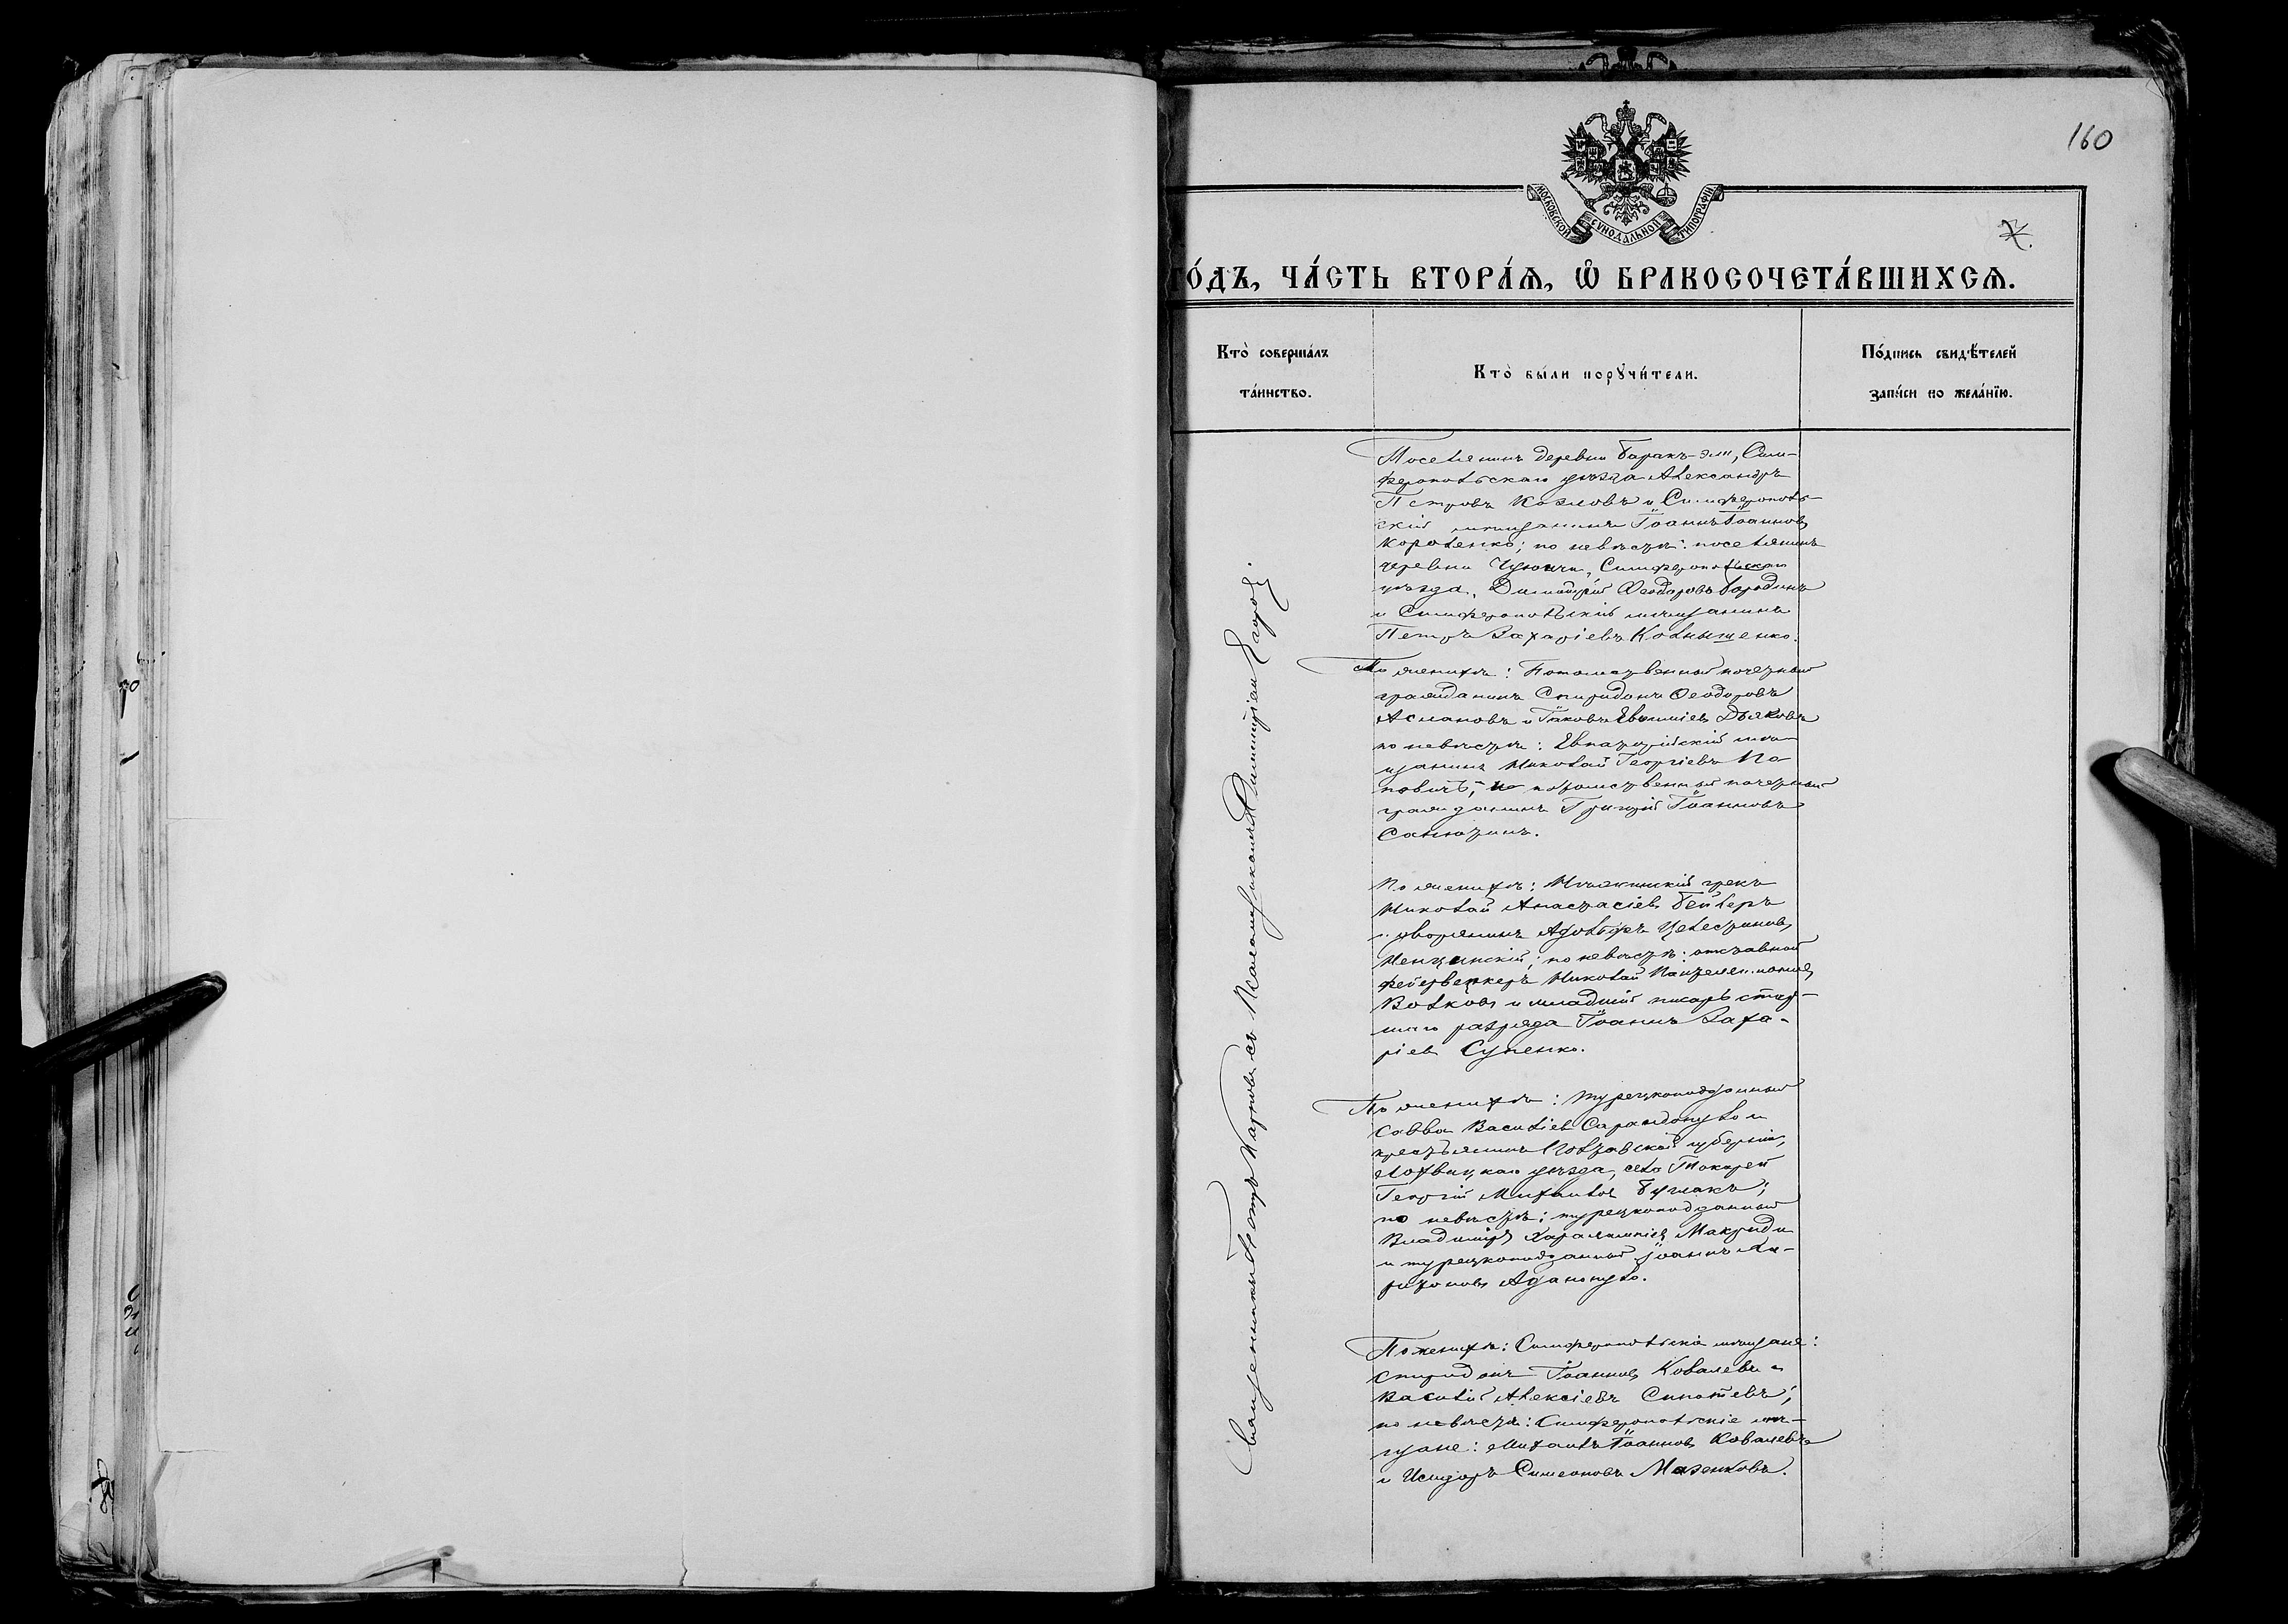 160
МОСКОВСКОЙ СУНОДАЛЬНОЙ ТИПОГРАФІИ
7.
ГО́ДЪ, ЧА́СТЬ ВТОРА́Ѧ, Ѡ҆ БРАКОСОЧЕТА́ВШИХСѦ.
Кто̀ соверша́лъ
та́инство.
Кто̀ бы́ли порꙋчи́тели.
По́дпись свидѣ́телей
за́писи по жела́нїю.
Священникъ Петръ Карповъ съ Псаломщикомъ Димитріемъ
Поселянинъ деревни Баракъ-эли, Сим-
феропольскаго уѣзда Александръ
Петровъ Козловъ и Симферополь-
скій мѣщанинъ Іоаннъ Іоанновъ
Короленко; по невѣстѣ: поселянинъ
деревни Симферопольскаго
уѣзда, Димитрій Феодоровъ Бородинъ
и Симферопольскій мѣщанинъ
Петръ Захаріевъ
По женихѣ: Потомственный почетный
гражданинъ Спиридонъ Феодоровъ
Аслановъ и Іаковъ Евѳиміевъ Дьяковъ
по невѣстѣ: Евпаторійскій мѣ-
щанинъ Николай Георгіевъ По-
повичъ, и потомственный почетный
гражданинъ Григорій Іоанновъ
По женихѣ: Нѣжинскій грекъ
Николай Анастасіевъ Бейлеръ
и дворянинъ Адольфъ Целестиновъ
по невѣстѣ: отставной
фейерверкеръ Николай Пантелеимоновъ
Волковъ и младшій писарь стар-
шаго разряда Іоаннъ Заха-
ріевъ Супенко.
По женихѣ: турецкоподданный
Савва Василіевъ и
крестьянинъ Полтавской губерніи,
Лохвицкаго уѣзда, села Токарей
Георгій Михаиловъ Бурлакъ;
по невѣстѣ: турецкоподданный
Владиміръ Харалампіевъ Макриди
и турецкоподданный Іоаннъ Ха-
ритоновъ
По женихѣ: Симферопольскіе мѣщане:
Спиридонъ Іоанновъ Ковалевъ и
Василій Алексіевъ
по невѣстѣ: Симферопольскіе мѣ-
щане: Михаилъ Іоанновъ Ковалевъ
и Исидоръ Симеоновъ Мазенковъ.